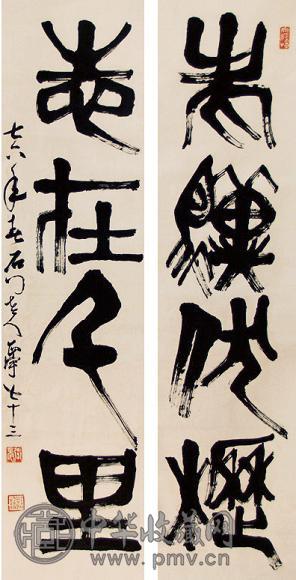 老驥伏櫪
志在千里
七六年春石門老人 七十三
中华收藏网
www.pmv.cn